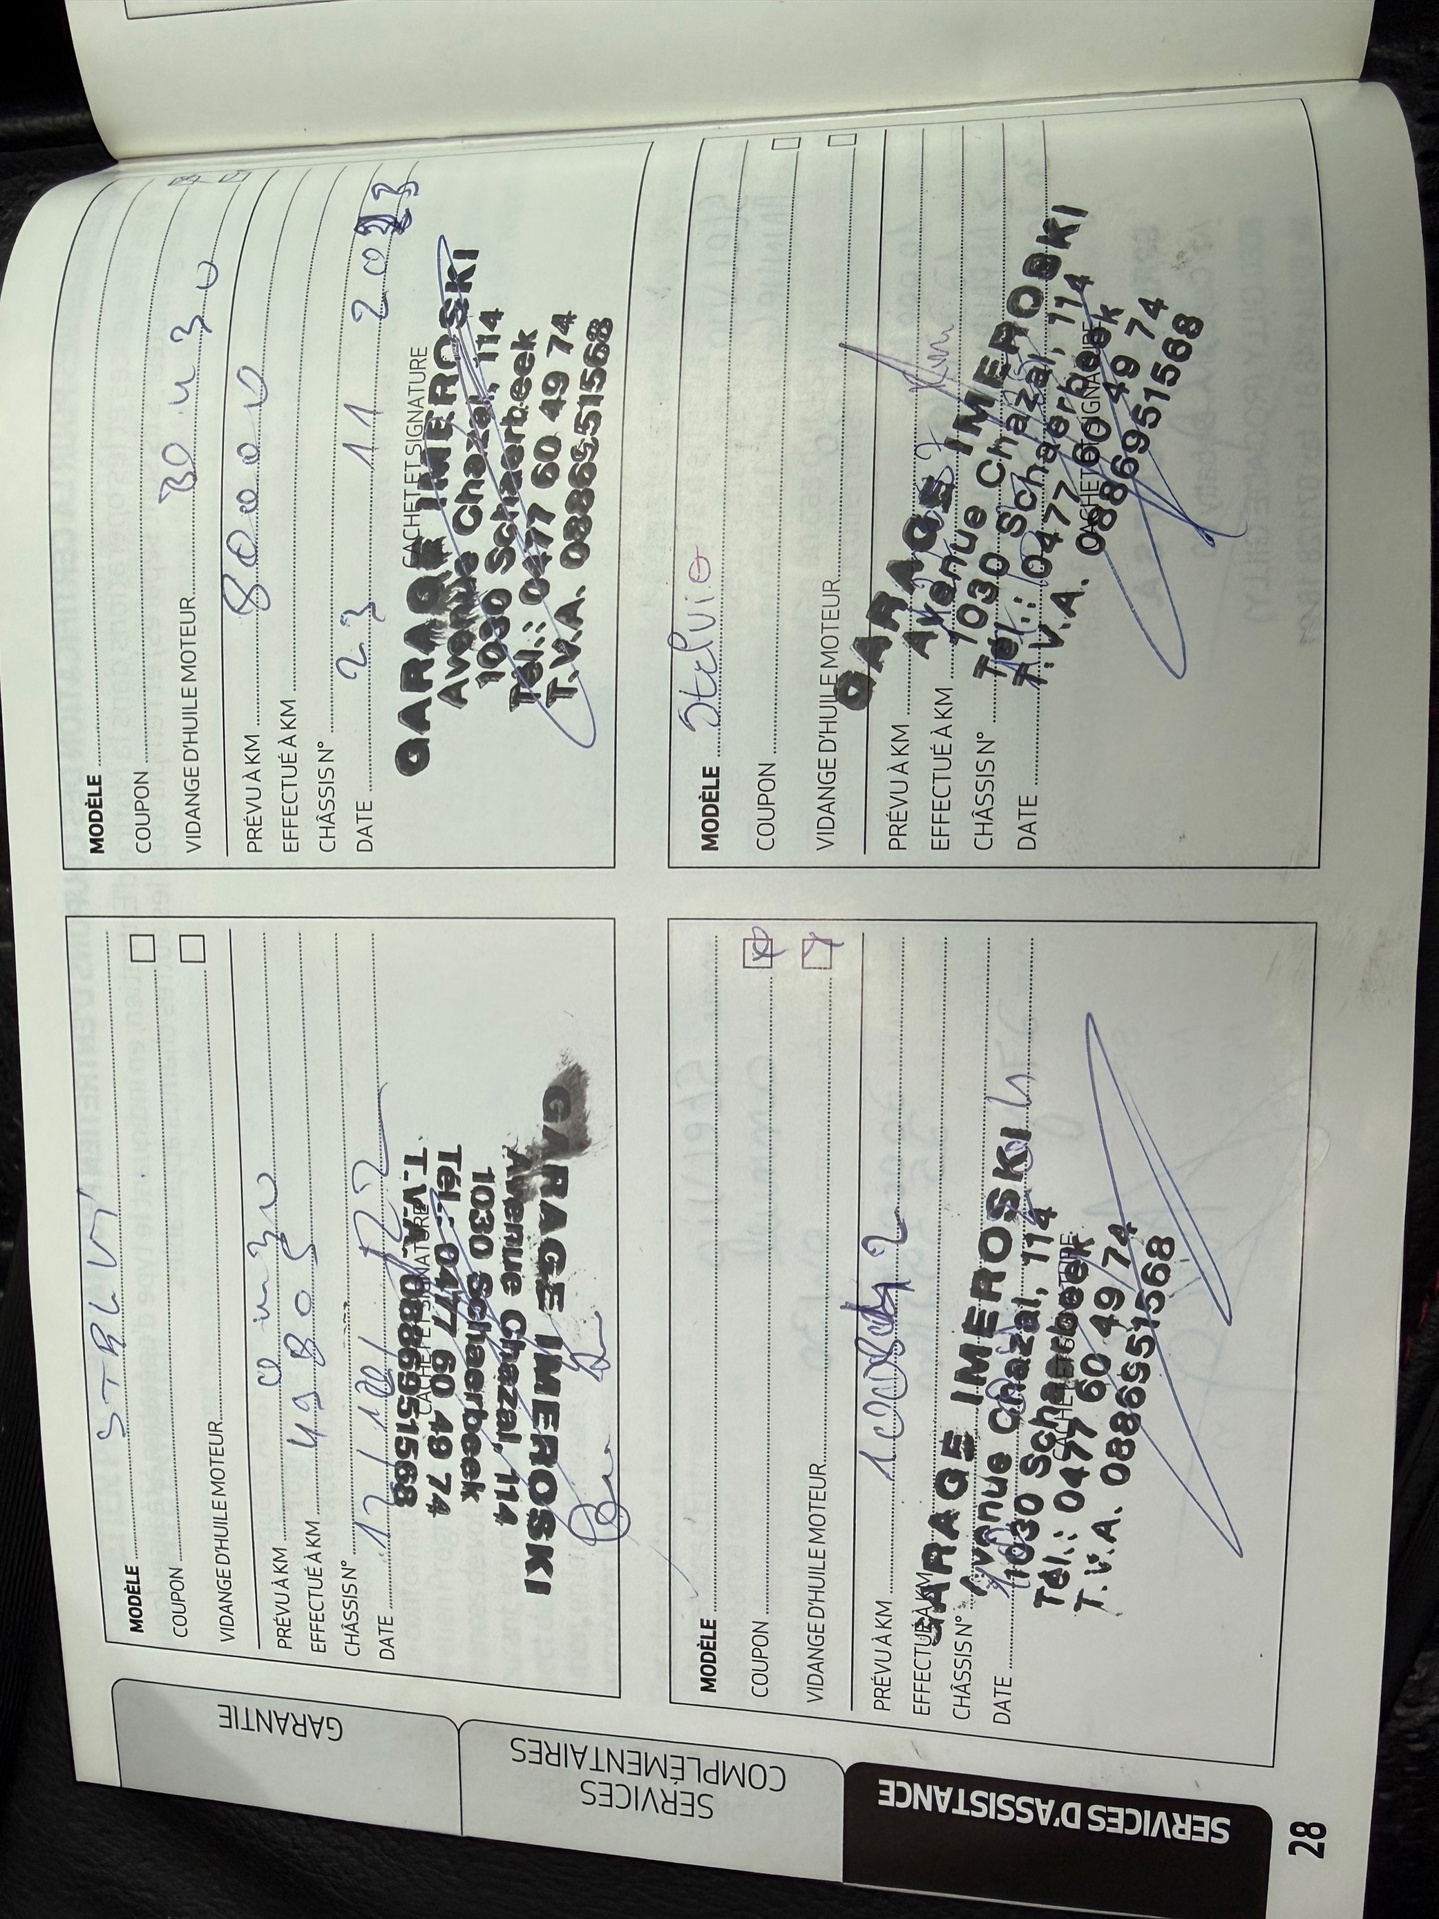 MODÈLE
COUPON
VIDANGE D'HUILE MOTEUR
PRÉVU À KM
EFFECTUÉ À KM 49805
CHÂSSIS N°
DATE
CACHET ET SIGNATURE
GARAGE IMEROSKI
Avenue Chazal, 114
1030 Schaerbeek
Tél.: 0477 60 49 74
T.V.A. 0886951568
MODÈLE
COUPON
VIDANGE D'HUILE MOTEUR
PRÉVU À KM 80000
EFFECTUÉ À KM
CHÂSSIS N°
DATE 23 11 2023
CACHET ET SIGNATURE
GARAGE IMEROSKI
Avenue Chazal, 114
1030 Schaerbeek
Tél.: 0477 60 49 74
T.V.A. 0886951568
MODÈLE
COUPON
VIDANGE D'HUILE MOTEUR
PRÉVU À KM
EFFECTUÉ À KM
CHÂSSIS N°
DATE
CACHET ET SIGNATURE
GARAGE IMEROSKI
Avenue Chazal, 114
1030 Schaerbeek
Tél.: 0477 60 49 74
T.V.A. 0886951568
MODÈLE Stelvio
COUPON
VIDANGE D'HUILE MOTEUR
PRÉVU À KM
EFFECTUÉ À KM
CHÂSSIS N°
DATE
CACHET ET SIGNATURE
GARAGE IMEROSKI
Avenue Chazal, 114
1030 Schaerbeek
Tél.: 0477 60 49 74
T.V.A. 0886951568
GARANTIE
SERVICES
COMPLÉMENTAIRES
SERVICES D'ASSISTANCE
28